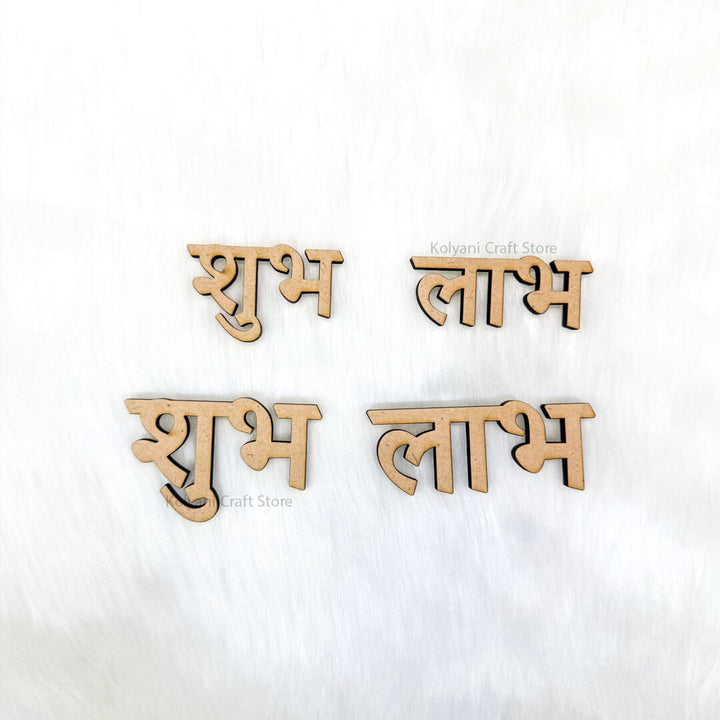 Kolyani Craft Store
शुभ लाभ
शुभ लाभ
Kolyani Craft Store